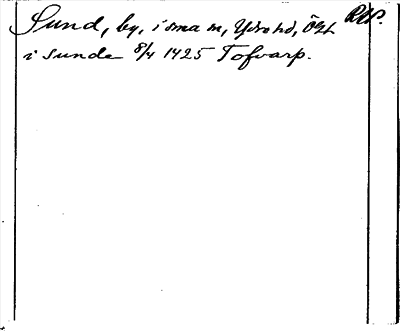 Sund, by, i sma m, Ydre hd, Ögl RAP.
i sunde 8/4 1425 Tofvarp.